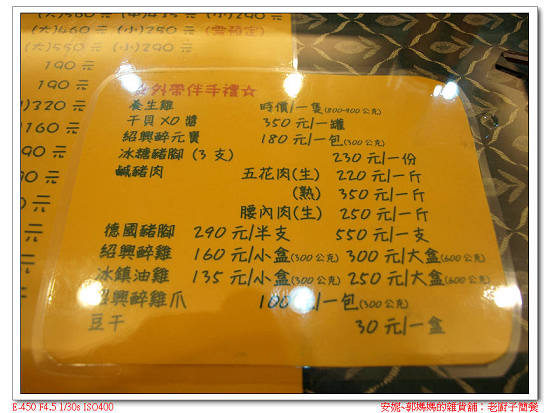 (大)460 元 (小)250 元 (需預定)
(大)550 元 (小)290 元
190 元
190 元
)320 元
160 元
90 元
☆外帶伴手禮☆
養生雞 時價/一隻(800-900公克)
干貝XO醬 350元/一罐
紹興醉元寶 180元/一包(300公克)
冰糖豬腳(3支) 230元/一份
鹹豬肉 五花肉(生) 220元/一斤
(熟) 350元/一斤
腰內肉(生) 250元/一斤
德國豬腳 290元/半支 550元/一支
紹興醉雞 160元/小盒(300公克) 300元/大盒(600公克)
冰鎮油雞 135元/小盒(300公克) 250元/大盒(600公克)
紹興醉雞爪 100元/一包(300公克)
豆干 30元/一盒
E-450 F4.5 1/30s ISO400
安妮~郭媽媽的雜貨舖：老廚子簡餐